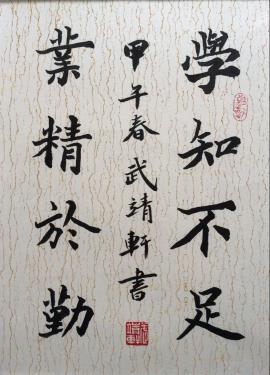 學知不足
業精於勤
甲午春武靖軒書